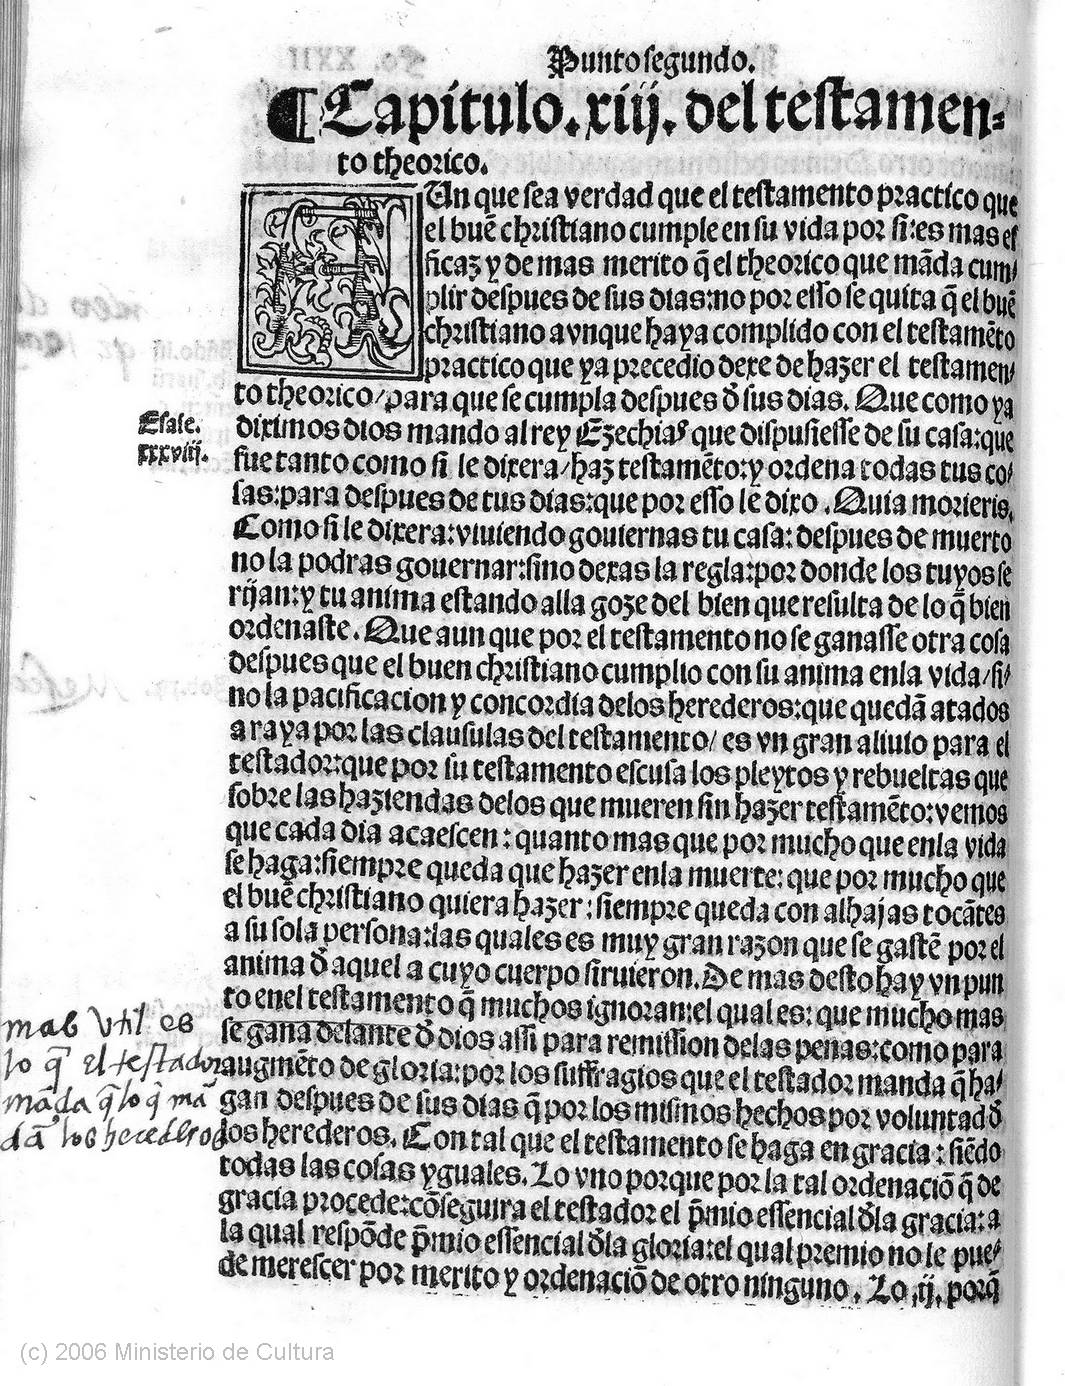 Punto segundo.
¶ Capitulo .xiij. del testamen-
to theorico.
AUn que sea verdad que el testamento practico que
el buē christiano cumple en su vida por si: es mas ef
ficaz y de mas merito q̄ el theorico que māda cum/
plir despues de sus dias: no por esso se quita q̄ el buē
christiano avnque haya complido con el testamēto
practico que ya precedio dexe de hazer el testamen/
to theorico/ para que se cumpla despues d̄ sus dias. Que como ya
Esaie.
xxxviij.
diximos dios mando al rey Ezechias que dispusiesse de su casa: que
fue tanto como si le dixera/ haz testamēto: y ordena todas tus co/
sas: para despues de tus dias: que por esso le dixo. Quia morieris.
Como si le dixera: viuiendo gouiernas tu casa: despues de muerto
no la podras gouernar: sino dexas la regla: por donde los tuyos se
rijan: y tu anima estando alla goze del bien que resulta de lo q̄ bien
ordenaste. Que aun que por el testamento no se ganasse otra cosa
despues que el buen christiano cumplio con su anima enla vida/ si/
no la pacificacion y concordia delos herederos: que quedā atados
a raya por las clausulas del testamento/ es vn gran aliuio para el
testador: que por su testamento escusa los pleytos y rebueltas que
sobre las haziendas delos que mueren sin hazer testamēto: vemos
que cada dia acaescen: quanto mas que por mucho que enla vida
se haga: siempre queda que hazer enla muerte: que por mucho que
el buē christiano quiera hazer: siempre queda con alhajas tocātes
a su sola persona: las quales es muy gran razon que se gastē por el
anima d̄ aquel a cuyo cuerpo siruieron. De mas desto hay vn pun
to enel testamento q̄ muchos ignoran: el qual es: que mucho mas
se gana delante d̄ dios assi para remission delas penas: como para
augmēto de gloria: por los suffragios que el testador manda q̄ ha/
gan despues de sus dias q̄ por los mismos hechos por voluntad d̄
los herederos. Con tal que el testamento se haga en gracia: siēdo
todas las cosas yguales. Lo vno porque por la tal ordenaciō q̄ de
gracia procede: cōseguira el testador el p̄mio essencial d̄la gracia: a
la qual respōde p̄mio essencial d̄la gloria: el qual premio no le pue/
de merescer por merito y ordenaciō de otro ninguno. Lo .ij. porq̄
mas vtil es
lo q̄ el testador
māda q̄ lo q̄ mā
dā los herederos
(c) 2006 Ministerio de Cultura